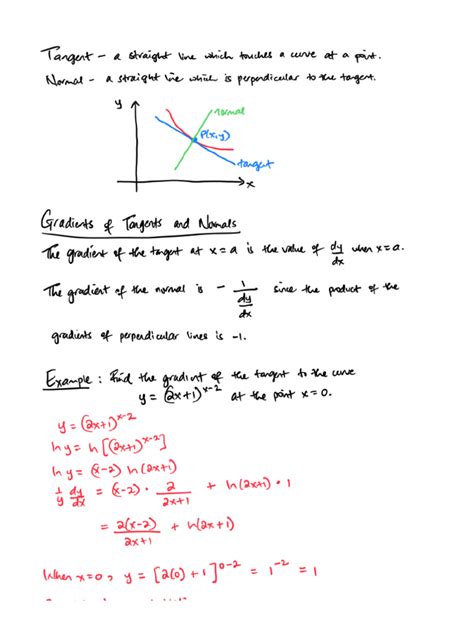 Tangent - a straight line which touches a curve at a point.
Normal - a straight line which is perpendicular to the tangent.
y
normal
P(x,y)
tangent
x
Gradients of Tangents and Normals
The gradient of the tangent at x = a is the value of dy/dx when x = a.
The gradient of the normal is - 1/(dy/dx) since the product of the
gradients of perpendicular lines is -1.
Example : Find the gradient of the tangent to the curve
y = (2x+1)^(x-2) at the point x = 0.
y = (2x+1)^(x-2)
ln y = ln [(2x+1)^(x-2)]
ln y = (x-2) ln (2x+1)
1/y dy/dx = (x-2) · 2/(2x+1) + ln(2x+1) · 1
= 2(x-2)/(2x+1) + ln(2x+1)
When x=0, y = [2(0) + 1]^(0-2) = 1^(-2) = 1